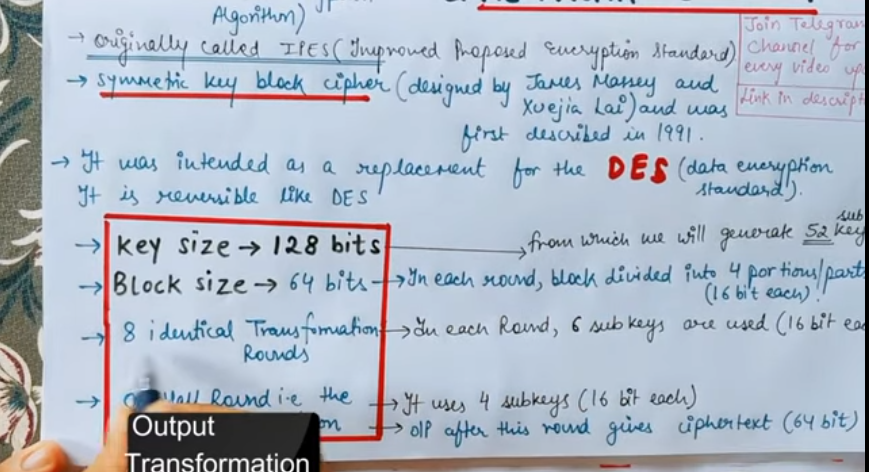 Algorithm)
→ originally called IPES (Improved Proposed Encryption Standard)
→ symmetric key block cipher (designed by James Massey and
Xuejia Lai) and was
first described in 1991.
Join Telegram
Channel for
every video
Link in
→ It was intended as a replacement for the DES (data encryption
standard).
It is reversible like DES
→ key size → 128 bits → from which we will generate 52 sub
key
→ Block size → 64 bits → In each round, block divided into 4 portions/part
(16 bit each).
→ 8 identical Transformation → In each Round, 6 subkeys are used (16 bit
Rounds
→ Round i.e the → It uses 4 subkeys (16 bit each)
→ O/P after this round gives ciphertext (64 bit)
Output
Transformation